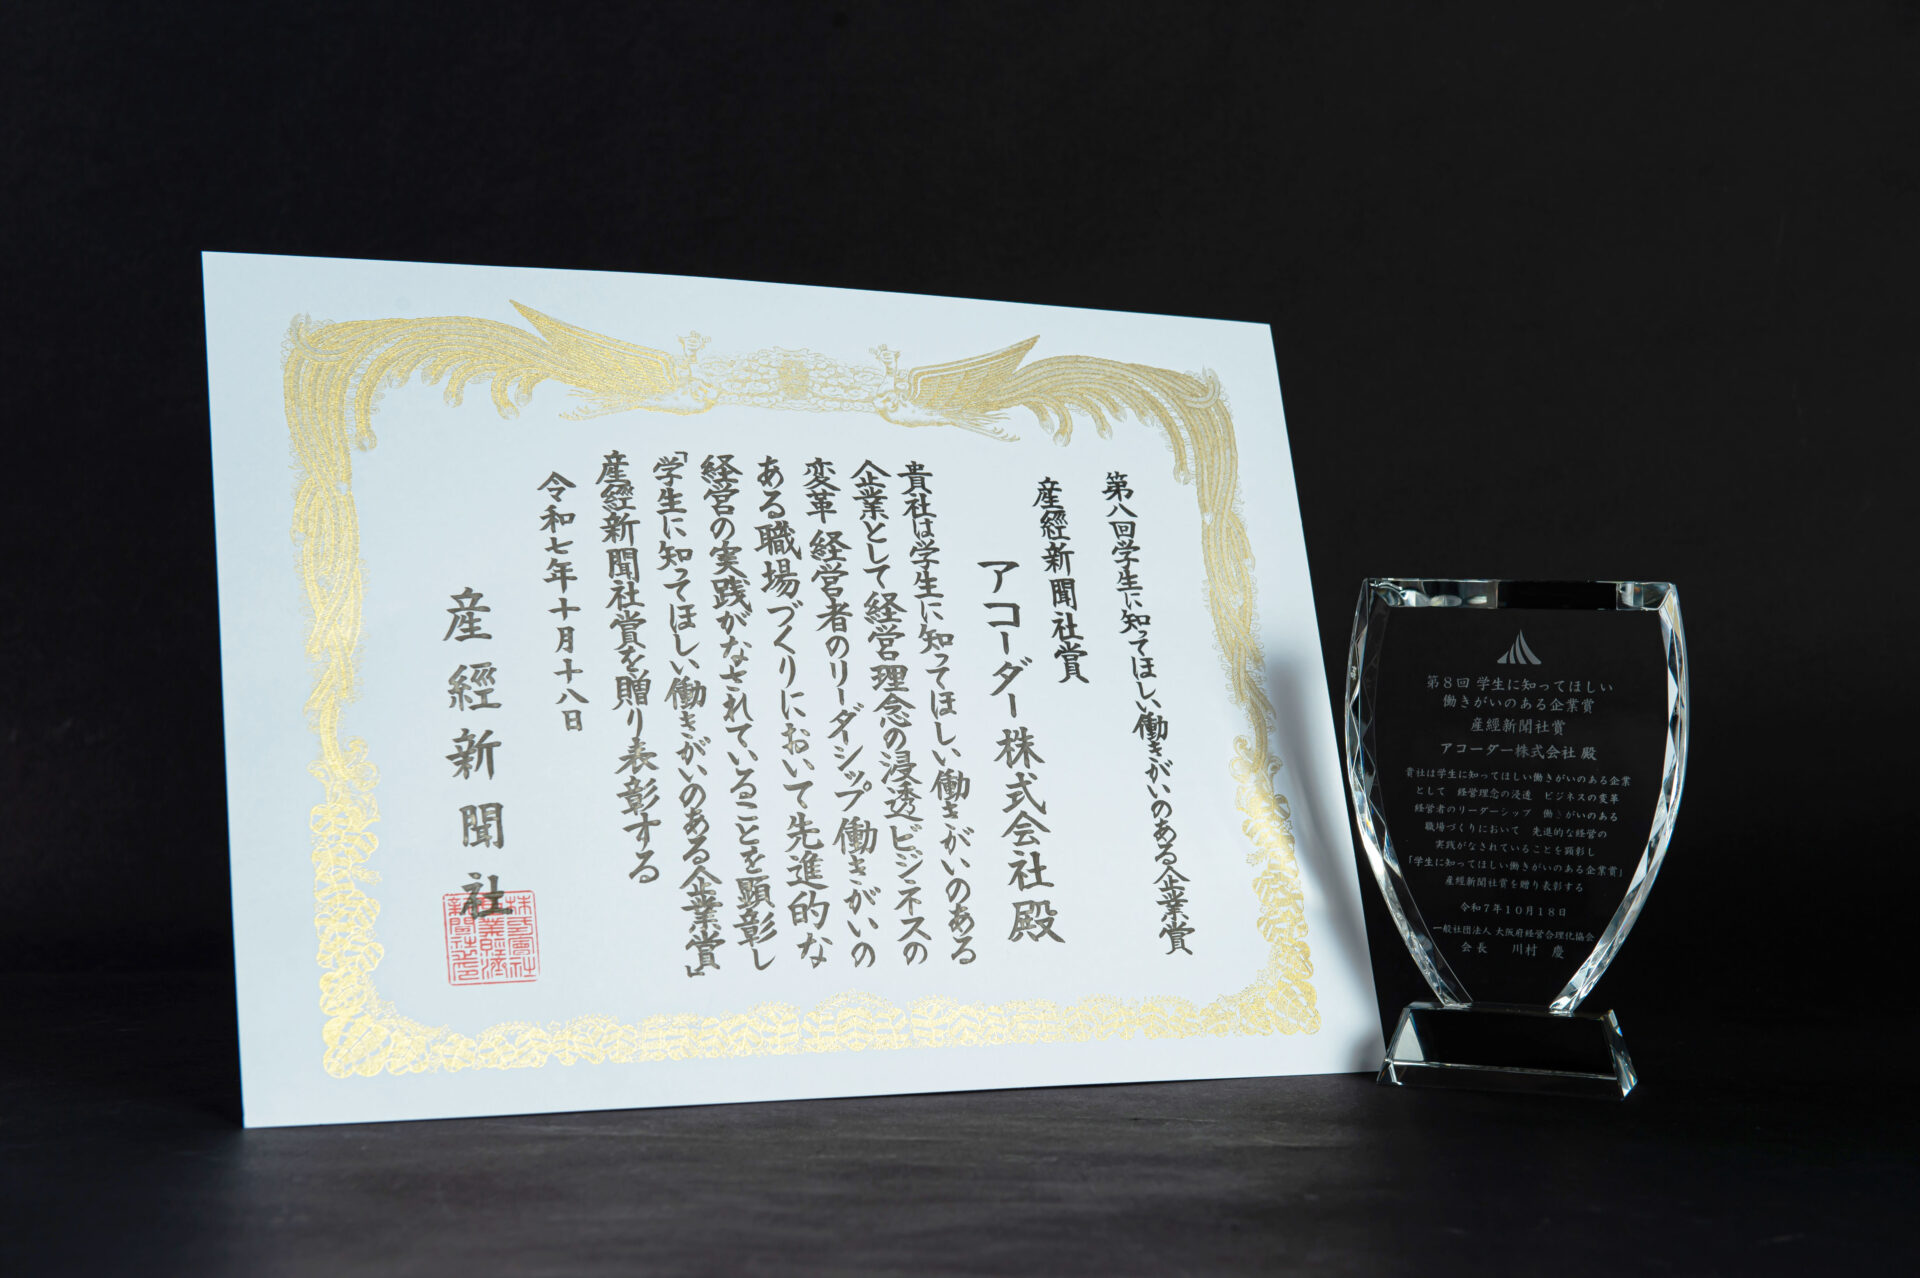 第八回学生に知ってほしい働きがいのある企業賞
産經新聞社賞
アコーダー株式会社殿
貴社は学生に知ってほしい働きがいのある
企業として経営理念の浸透ビジネスの
変革 経営者のリーダシップ 働きがいの
ある職場づくりにおいて先進的な
経営の実践がなされていることを顕彰し
「学生に知ってほしい働きがいのある企業賞」
産經新聞社賞を贈り表彰する
令和七年十月十八日
産經新聞社
第8回 学生に知ってほしい
働きがいのある企業賞
産經新聞社賞
アコーダー株式会社 殿
貴社は学生に知ってほしい働きがいのある企業
として 経営理念の浸透 ビジネスの変革
経営者のリーダーシップ 働きがいのある
職場づくりにおいて 先進的な経営の
実践がなされていることを顕彰し
「学生に知ってほしい働きがいのある企業賞」
産經新聞社賞を贈り表彰する
令和7年10月18日
一般社団法人 大阪府経営合理化協会
会長 川村 慶